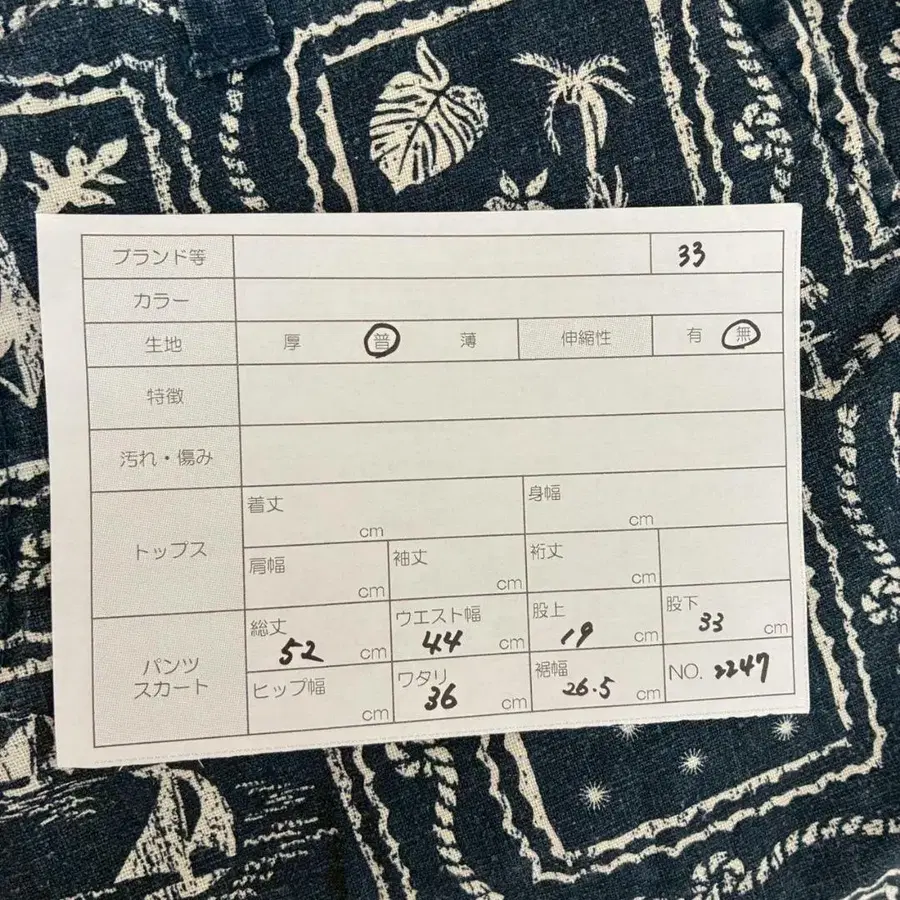 ブランド等 33
カラー
生地 厚 普 薄 伸縮性 有 無
特徴
汚れ・傷み
トップス
着丈 cm 身幅 cm
肩幅 cm 袖丈 cm 裄丈 cm
パンツ
スカート
総丈 52 cm ウエスト幅 44 cm 股上 19 cm 股下 33 cm
ヒップ幅 cm ワタリ 36 cm 裾幅 26.5 cm NO. 2247